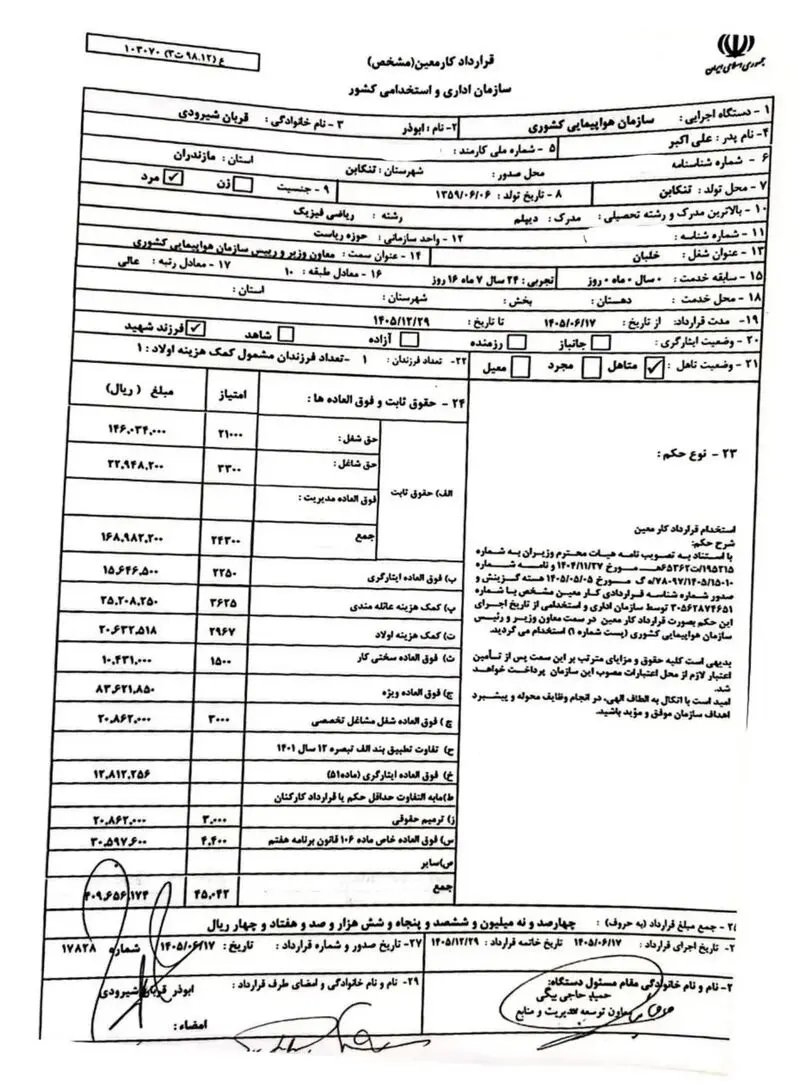 ع (۹۸.۱۲ ت۳) ۱۰۳۰۷۰
جمهوری اسلامی ایران
قرارداد کار معین(مشخص)
سازمان اداری و استخدامی کشور
۱ - دستگاه اجرایی : سازمان هواپیمایی کشوری
۲- نام : ابوذر
۳ - نام خانوادگی : قربان شیرودی
۴- نام پدر : علی اکبر
۵ - شماره ملی کارمند :
۶ - شماره شناسنامه
محل صدور : شهرستان : تنکابن استان : مازندران
۷ - محل تولد : تنکابن
۸ - تاریخ تولد : ۱۳۵۹/۰۶/۰۶
۹ - جنسیت زن مرد
۱۰ - بالاترین مدرک و رشته تحصیلی : مدرک : دیپلم رشته : ریاضی فیزیک
۱۱ - شماره شناسه :
۱۲ - واحد سازمانی : حوزه ریاست
۱۳ - عنوان شغل : خلبان
۱۴ - عنوان سمت : معاون وزیر و رییس سازمان هواپیمایی کشوری
۱۵ - سابقه خدمت : ۰ سال ۰ ماه ۰ روز
تجربی : ۲۴ سال ۷ ماه ۱۶ روز
۱۶ - معادل طبقه : ۱۰
۱۷ - معادل رتبه : عالی
۱۸ - محل خدمت : دهستان : بخش : شهرستان : استان :
۱۹- مدت قرارداد: از تاریخ : ۱۴۰۵/۰۶/۱۷ تا تاریخ : ۱۴۰۵/۱۲/۲۹
۲۰ - وضعیت ایثارگری : جانباز رزمنده آزاده شاهد فرزند شهید
۲۱ - وضعیت تاهل : متاهل مجرد معیل
۲۲- تعداد فرزندان : ۱ -تعداد فرزندان مشمول کمک هزینه اولاد : ۱
۲۳ - نوع حکم :
استخدام قرارداد کار معین
شرح حکم:
با استناد به تصویب نامه هیات محترم وزیران به شماره
۱۹۵۲۱۵/ت۶۵۳۶۲هـ مورخ ۱۴۰۴/۱۱/۲۷ و نامه شماره
۷۸۰۹۷/۱۴۰۵/۱۵۰۱۰/ه ک مورخ ۱۴۰۵/۰۵/۰۵ هسته گزینش و
صدور شماره شناسه قراردادی کار معین مشخص با شماره
۳۰۵۶۲۸۷۴۶۵۱ توسط سازمان اداری و استخدامی از تاریخ اجرای
این حکم بصورت قرارداد کار معین در سمت معاون وزیر و رئیس
سازمان هواپیمایی کشوری (پست شماره ۱) استخدام می گردید.
بدیهی است کلیه حقوق و مزایای مترتب بر این سمت پس از تأمین
اعتبار لازم از محل اعتبارات مصوب این سازمان پرداخت خواهد
شد.
امید است با اتکال به الطاف الهی، در انجام وظایف محوله و پیشبرد
اهداف سازمان موفق و مؤید باشید.
۲۴ - حقوق ثابت و فوق العاده ها : امتیاز مبلغ ( ریال)
الف) حقوق ثابت
حق شغل : ۲۱۰۰۰ ۱۴۶,۰۳۴,۰۰۰
حق شاغل : ۳۳۰۰ ۲۲,۹۴۸,۲۰۰
فوق العاده مدیریت :
جمع ۲۴۳۰۰ ۱۶۸,۹۸۲,۲۰۰
ب) فوق العاده ایثارگری ۲۲۵۰ ۱۵,۶۴۶,۵۰۰
پ) کمک هزینه عائله مندی ۳۶۲۵ ۲۵,۲۰۸,۲۵۰
ت) کمک هزینه اولاد ۲۹۶۷ ۲۰,۶۳۲,۵۱۸
ث) فوق العاده سختی کار ۱۵۰۰ ۱۰,۴۳۱,۰۰۰
ج) فوق العاده ویژه ۸۳,۶۲۱,۸۵۰
چ) فوق العاده شغل مشاغل تخصصی ۳۰۰۰ ۲۰,۸۶۲,۰۰۰
ح) تفاوت تطبیق بند الف تبصره ۱۲ سال ۱۴۰۱
خ) فوق العاده ایثارگری (ماده۵۱) ۱۲,۸۱۲,۲۵۶
ط)مابه التفاوت حداقل حکم یا قرارداد کارکنان
ز) ترمیم حقوقی ۳,۰۰۰ ۲۰,۸۶۲,۰۰۰
س) فوق العاده خاص ماده ۱۰۶ قانون برنامه هفتم ۴,۴۰۰ ۳۰,۵۹۷,۶۰۰
ص)سایر
جمع ۴۵,۰۴۲ ۴۰۹,۶۵۶,۱۷۴
۲۵ - جمع مبلغ قرارداد (به حروف) : چهارصد و نه میلیون و ششصد و پنجاه و شش هزار و صد و هفتاد و چهار ریال
تاریخ اجرای قرارداد : ۱۴۰۵/۰۶/۱۷ تاریخ خاتمه قرارداد : ۱۴۰۵/۱۲/۲۹
۲۷- تاریخ صدور و شماره قرارداد : تاریخ : ۱۴۰۵/۰۶/۱۷ شماره ۱۷۸۲۸
نام و نام خانوادگی مقام مسئول دستگاه:
حمید حاجی بیگی
معاون توسعه مدیریت و منابع
۲۹- نام و نام خانوادگی و امضای طرف قرارداد : ابوذر قربان شیرودی
امضاء :